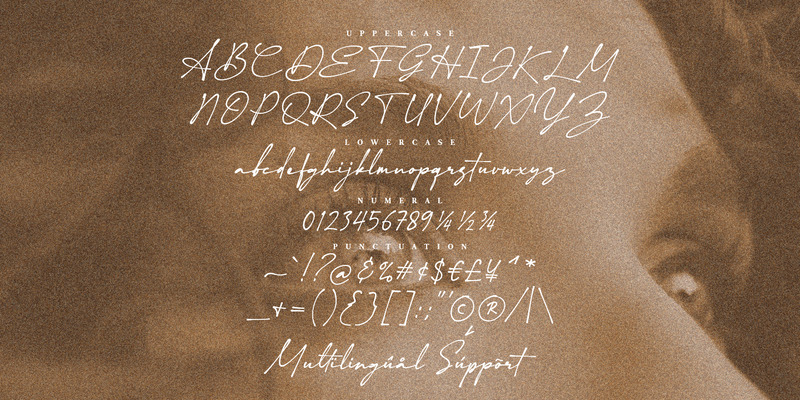 UPPERCASE
ABCDEFGHIJKLM
NOPQRSTUVWXYZ
LOWERCASE
abcdefghijklmnopqrstuvwxyz
NUMERAL
0123456789 ¼ ½ ¾
PUNCTUATION
~`!?@&%#¢$€£¥^*
_+=(){}[]:;"'©®/|\
Multilingúàl Súppõrt